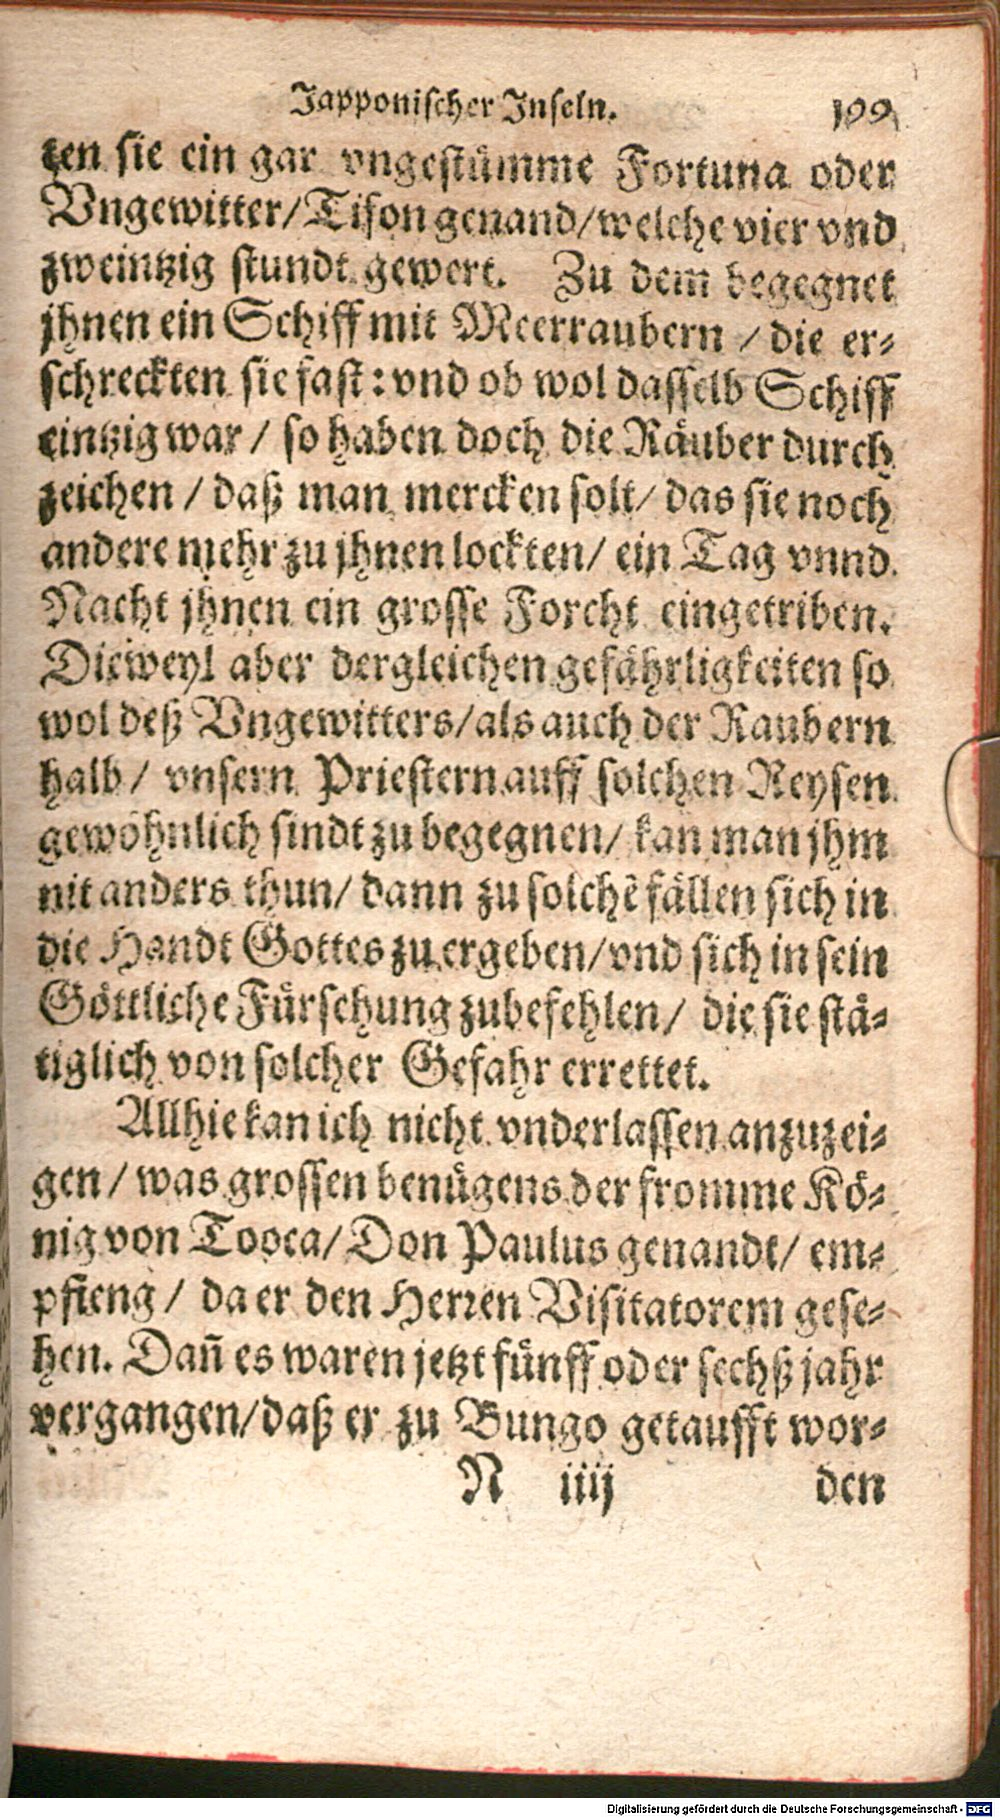 Japponischer Inseln. 199
ten sie ein gar vngestümme Fortuna oder
Vngewitter/Tifon genand/welche vier vnd
zweintzig stundt gewert. Zu dem begegnet
jhnen ein Schiff mit Meerraubern / die er-
schreckten sie fast: vnd ob wol dasselb Schiff
eintzig war / so haben doch die Räuber durch
zeichen / daß man mercken solt/ das sie noch
andere mehr zu jhnen lockten/ ein Tag vnnd
Nacht jhnen ein grosse Forcht eingetriben.
Dieweyl aber dergleichen gefährligkeiten so
wol deß Vngewitters/als auch der Raubern
halb / vnsern Priestern auff solchen Reysen
gewöhnlich sindt zu begegnen/ kan man jhm
nit anders thun/ dann zu solchẽ fällen sich in
die Handt Gottes zu ergeben/vnd sich in sein
Göttliche Fürsehung zubefehlen/ die sie stä-
tiglich von solcher Gefahr errettet.
Allhie kan ich nicht vnderlassen anzuzei-
gen / was grossen benügens der fromme Kö-
nig von Tooca/ Don Paulus genandt/ em-
pfieng / da er den Herren Visitatorem gese-
hen. Dañ es waren jetzt fünff oder sechß jahr
vergangen/daß er zu Bungo getaufft wor-
N iiij den
Digitalisierung gefördert durch die Deutsche Forschungsgemeinschaft - DFG